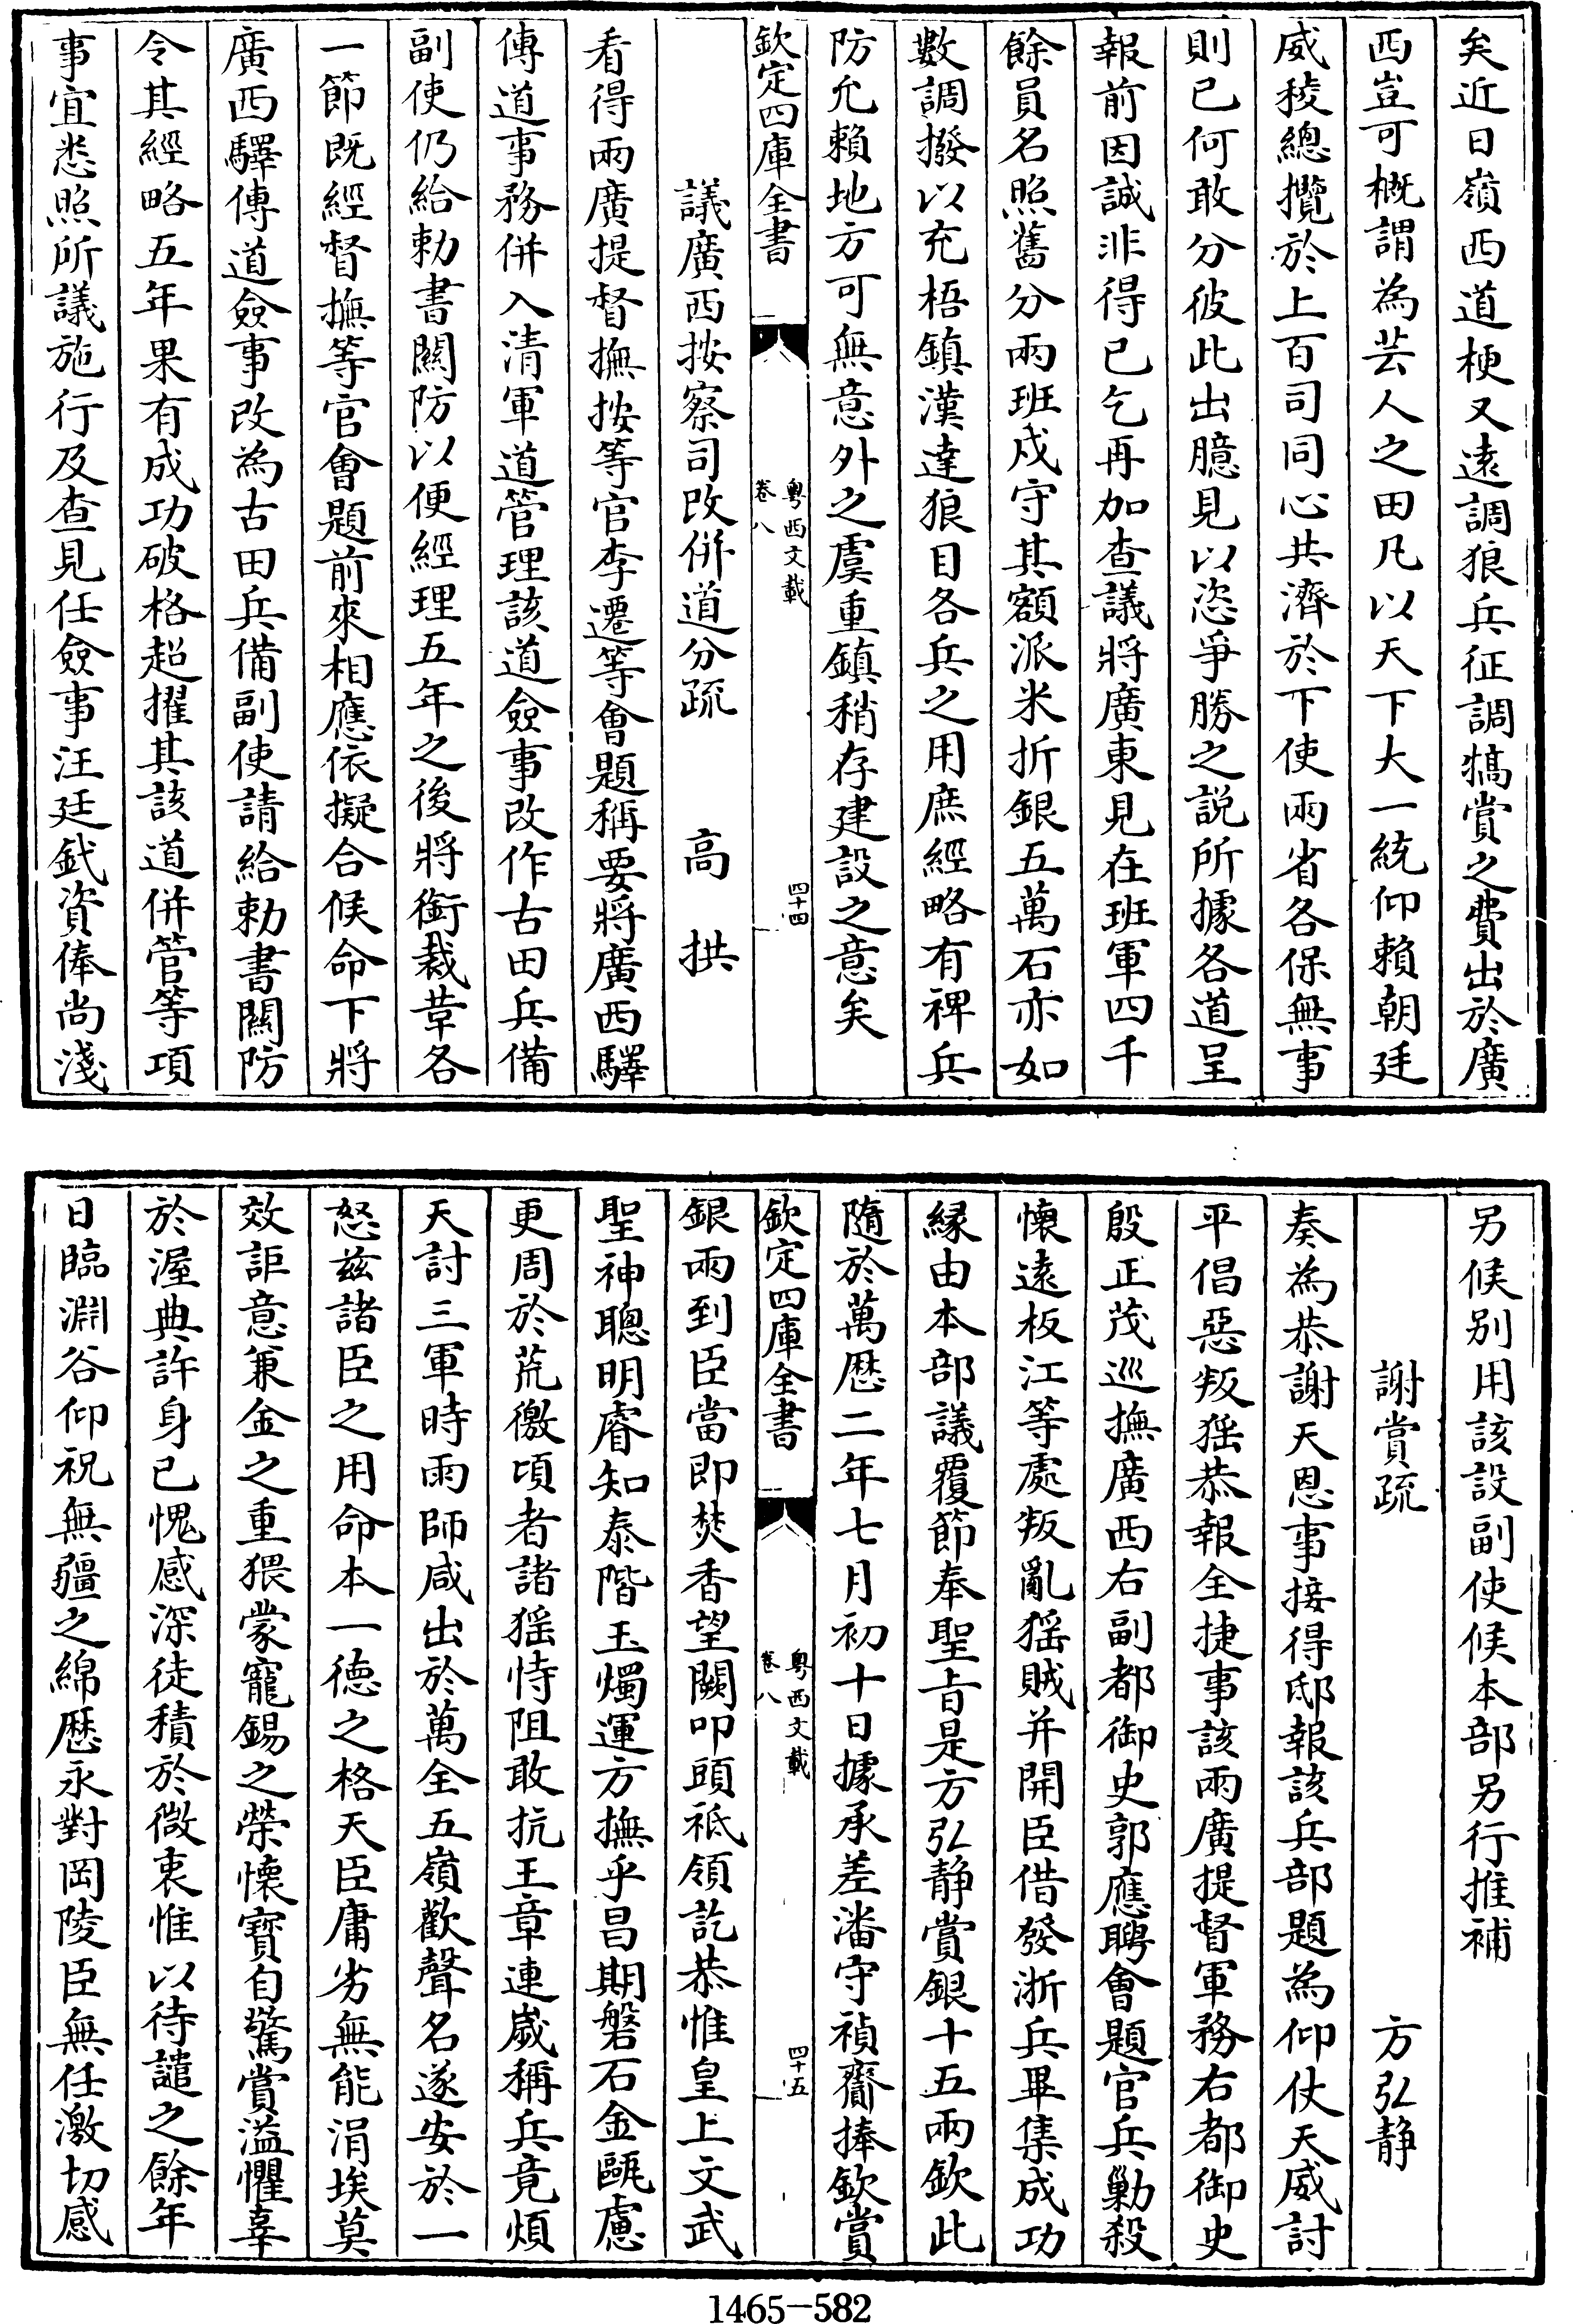 矣近日嶺西道梗又逺調狼兵征調犒賞之費出於廣
西豈可概謂為芸人之田凡以天下大一統仰賴朝廷
威稜總攬於上百司同心共濟於下使兩省各保無事
則已何敢分彼此出臆見以恣爭勝之說所據各道呈
報前因誠非得已乞再加查議將廣東見在班軍四千
餘員名照舊分兩班戍守其額派米折銀五萬石亦如
數調撥以充梧鎮漢達狼目各兵之用庶經略有裨兵
防允賴地方可無意外之虞重鎮稍存建設之意矣
欽定四庫全書
粤西文載
卷八
四十四
議廣西按察司改併道分疏 高拱
看得兩廣提督撫按等官李遷等會題稱要將廣西驛
傳道事務併入清軍道管理該道僉事改作古田兵備
副使仍給勅書關防以便經理五年之後將銜裁革各
一節既經督撫等官會題前來相應依擬合候命下將
廣西驛傳道僉事改為古田兵備副使請給勅書關防
令其經略五年果有成功破格超擢其該道併管等項
事宜悉照所議施行及查見任僉事汪廷鉞資俸尚淺
另候别用該設副使候本部另行推補
謝賞疏 方弘静
奏為恭謝天恩事接得邸報該兵部題為仰仗天威討
平倡惡叛猺恭報全捷事該兩廣提督軍務右都御史
殷正茂巡撫廣西右副都御史郭應聘會題官兵勦殺
懷逺板江等處叛亂猺賊并開臣借發浙兵畢集成功
縁由本部議覆節奉聖旨是方弘静賞銀十五兩欽此
隨於萬厯二年七月初十日據承差潘守禎齎捧欽賞
欽定四庫全書
粤西文載
卷八
四十五
銀兩到臣當即焚香望闕叩頭祗領訖恭惟皇上文武
聖神聰明睿知泰階玉燭運方撫乎昌期磐石金甌慮
更周於荒徼頃者諸猺恃阻敢抗王章連嵗稱兵竟煩
天討三軍時雨師咸出於萬全五嶺歡聲名遂安於一
怒兹諸臣之用命本一徳之格天臣庸劣無能涓埃莫
效詎意兼金之重猥蒙寵錫之榮懷寳自驚賞溢懼辜
於渥典許身已愧感深徒積於微衷惟以待譴之餘年
日臨淵谷仰祝無疆之綿厯永對岡陵臣無任激切感
1465-582